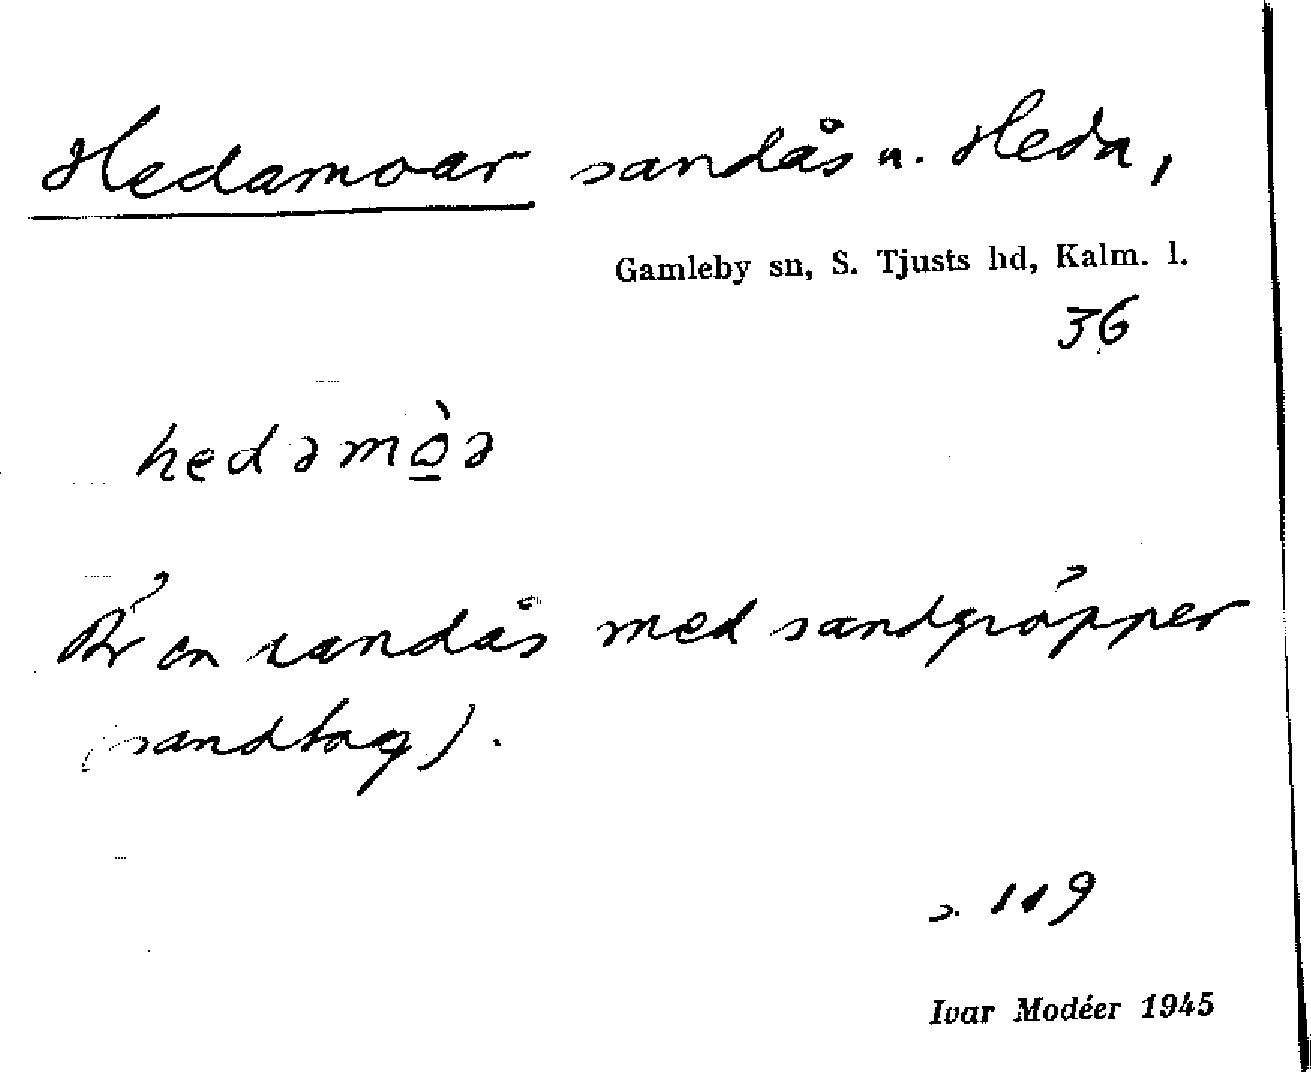 Hedamoar sandås u. Heda,
Gamleby sn, S. Tjusts hd, Kalm. l.
36
hedəmò̱ə
Är en sandås med sandgröpper
(sandtag).
s. 119
Ivar Modéer 1945